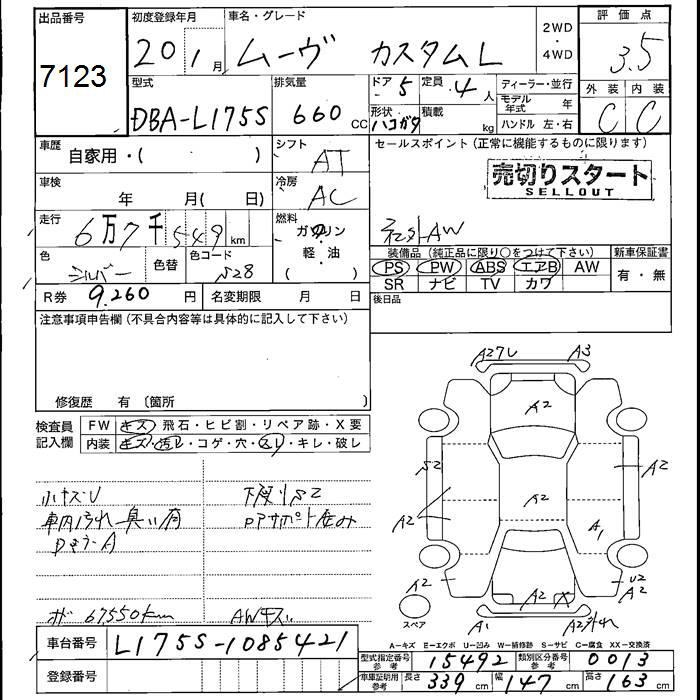 出品番号
7123
初度登録年月
20 1月
車名・グレード
ムーヴ カスタムL
2WD
・
4WD
評価点
3.5
型式
DBA-L175S
排気量
660 CC
ドア 5
定員 4人
形状 ハコガタ
積載 kg
ディーラー・並行
モデル年式 年
ハンドル 左・右
外装 内装
C C
車歴
自家用・( )
シフト
AT
セールスポイント(正常に機能するものに限ります)
売切りスタート
SELLOUT
車検
年 月( 日)
冷房
AC
走行
6万7千549km
燃料
ガソリン
軽・油
( )
社外AW
色
シルバー
色替
色コード
S28
装備品(純正品に限り○をつけて下さい)
PS PW ABS エアB AW
SR ナビ TV カワ
新車保証書
有・無
R券 9.260 円
名変期限 月 日
後日品
注意事項申告欄(不具合内容等は具体的に記入して下さい)
修復歴 有〔箇所 〕
検査員
記入欄
FW キズ・飛石・ヒビ割・リペア跡・X要
内装 キズ・汚レ・コゲ・穴・スレ・キレ・破レ
小キズU
下廻りS2
車内汚れ 臭い有
67550km
AWキズ
A27U A3
A2
S2
A2
A2
S2
A2
A1
A2
U2
A2
A2 X
A1
A2
スペア
車台番号 L175S-1085421
登録番号
A-キズ E-エクボ U-凹み W-補修跡 S-サビ C-腐食 XX-交換済
型式指定番号 参考 15492
類別区分番号 参考 0013
車庫証明用 参考 長さ 339cm 幅 147cm 高さ 163cm